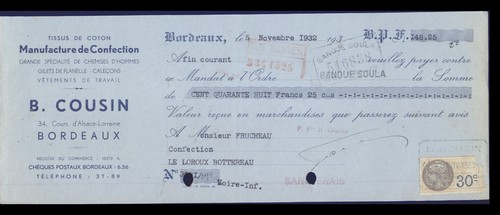 TISSUS DE COTON
Manufacture de Confection
GRANDE SPÉCIALITÉ DE CHEMISES D'HOMMES
GILETS DE FLANELLE - CALEÇONS
VÊTEMENTS DE TRAVAIL
B. COUSIN
34, Cours d'Alsace-Lorraine
BORDEAUX
REGISTRE DU COMMERCE
CHÈQUES POSTAUX BORDEAUX: 6.56
TÉLÉPHONE: 37-89
Bordeaux, le 5 Novembre 1932 193 B.P.F. 148.25
BANQUE SOULA
BANQUE SOULA
Afin courant veuillez payer contre
ce Mandat à L'Ordre la Somme
de CENT QUARANTE HUIT Francs 25 c
Valeur reçue en marchandises que passerez suivant avis
A Monsieur FRUCHEAU
Confection
LE LOROUX BOTTEREAU
N° Loire-Inf.
SANS FRAIS
30c